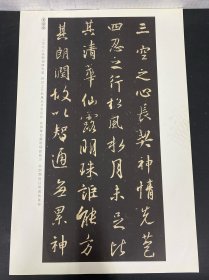 三空之心長契神情先苞
四忍之行松風水月未足比
其清華仙露明珠詎能方
其朗潤故以智通無累神